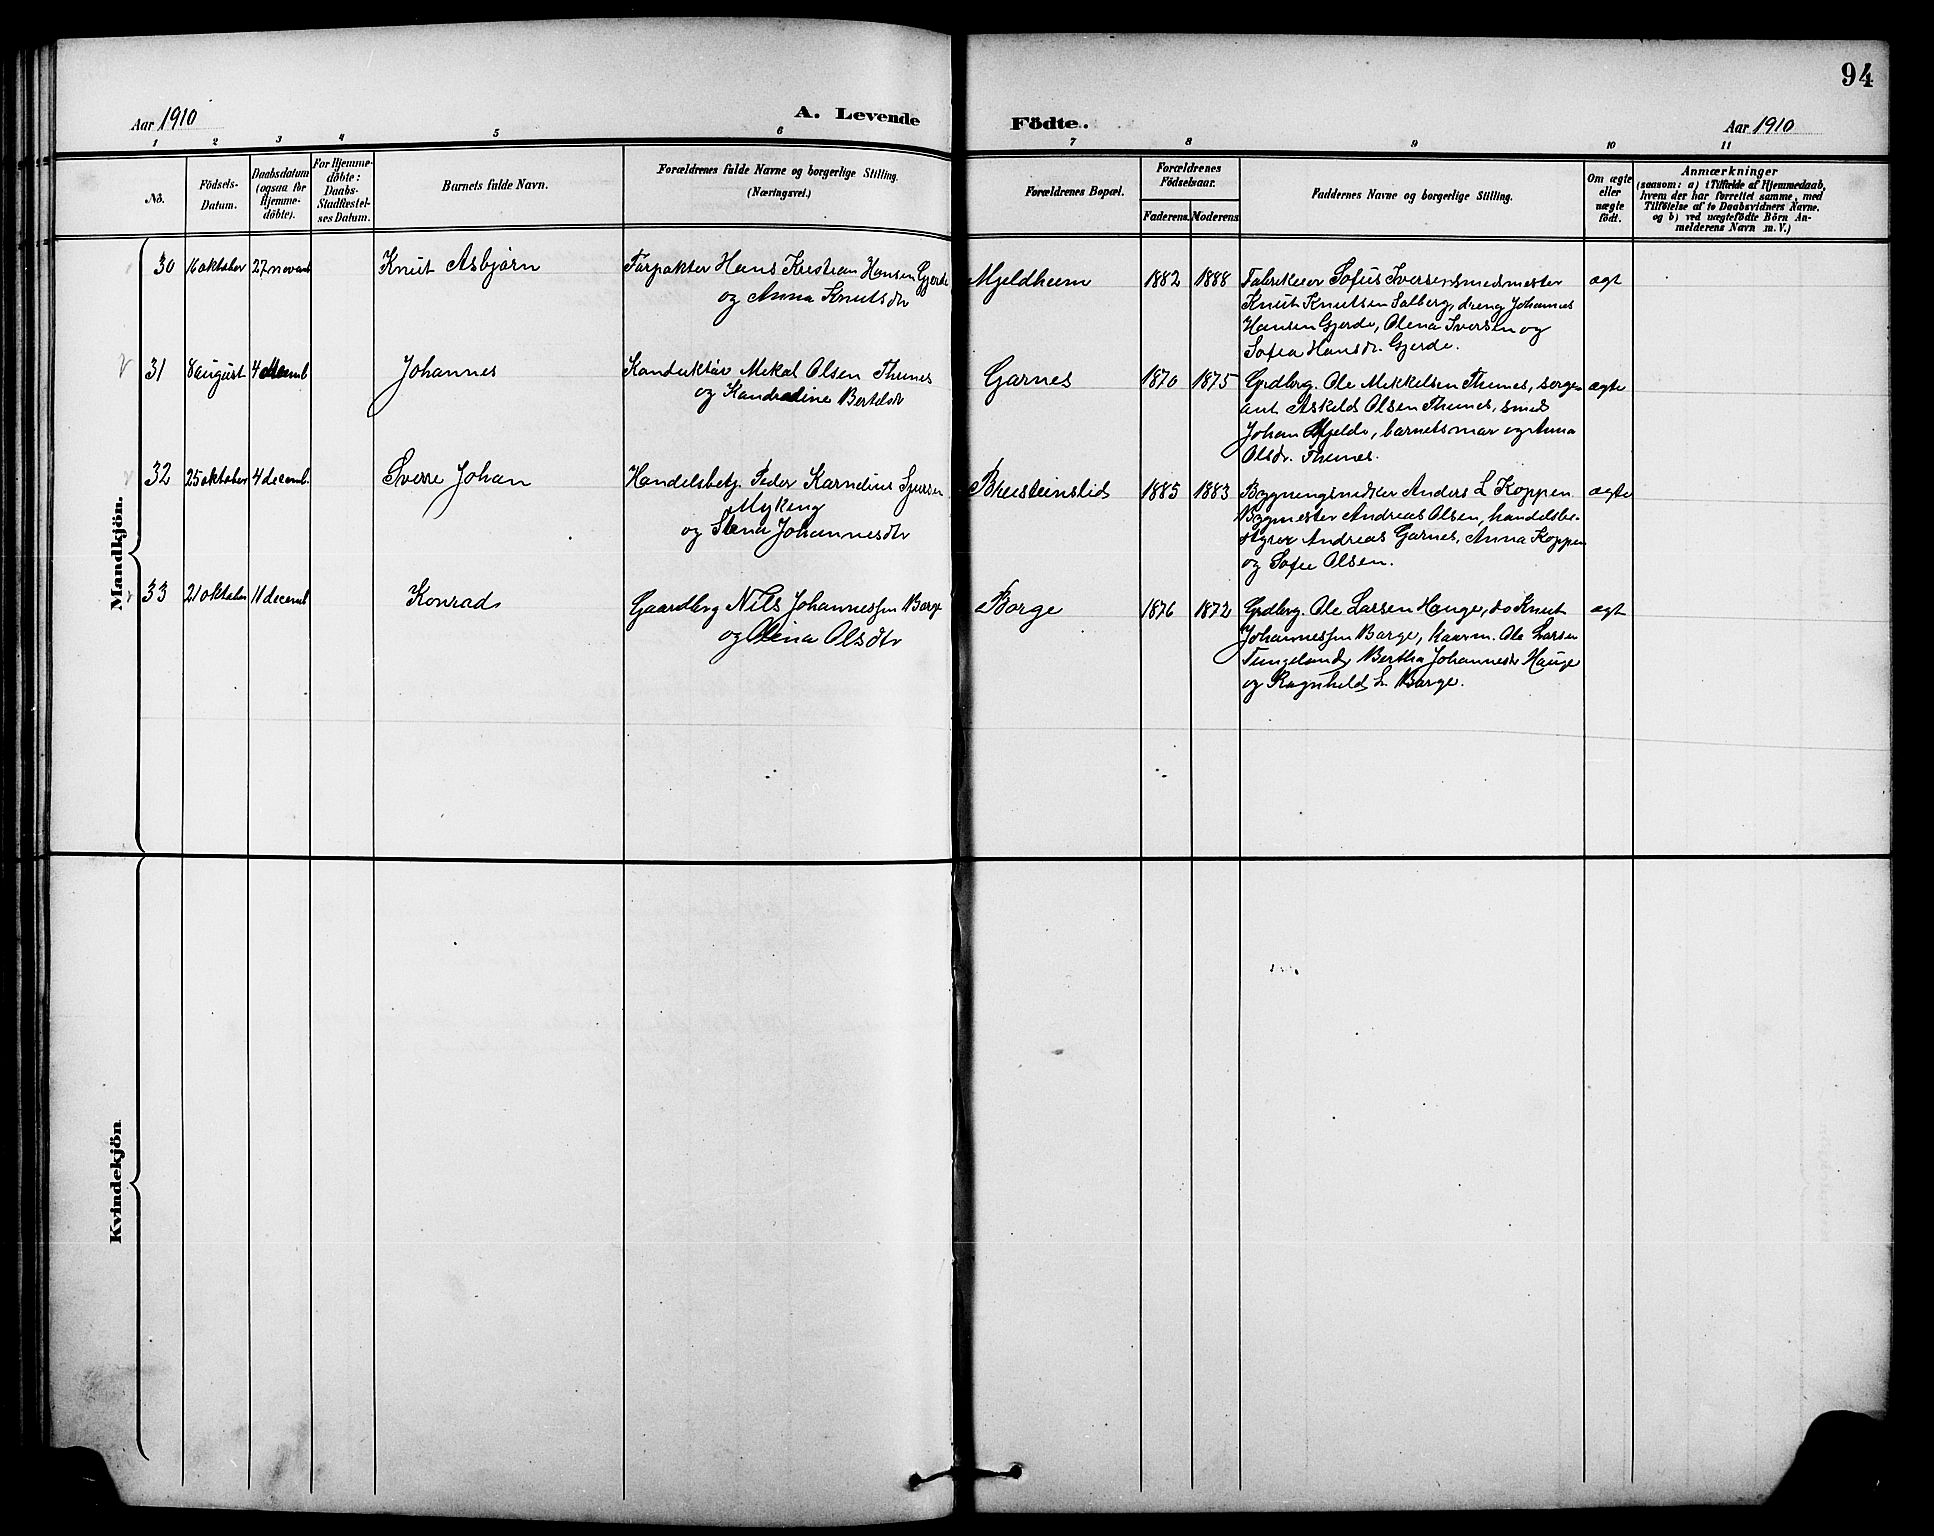 94
Aar 1910
A. Levende Födte.
Aar 1910
1 2 3 4 5 6 7 8 9 10 11
No.
Födsels-Datum.
Daabsdatum (ogsaa for Hjemmedöbte).
For Hjemmedöbte: Daabs-Stadfestelses Datum.
Barnets fulde Navn.
Forældrenes fulde Navne og borgerlige Stilling.
(Næringsvei.)
Forældrenes Bopæl.
Forældrenes Födselsaar.
Faderens. Moderens.
Faddernes Navne og borgerlige Stilling.
Om ægte eller uægte födt.
Anmærkninger
(saasom: a) i Tilfælde af Hjemmedaab,
hvem der har forrettet samme, med
Tilföielse af to Daabsvidners Navne.
og b) ved uægtefödte Börn An-
melderens Navn m. V.)
Mandkjön.
30 16 oktober 27 novemb Knut Asbjørn
Hans Kristian Hansen Gjerde
og Anna Knutsdtr
Mjeldheim 1882 1888
Fabrikeier Sofus Iversen smedmester
Knut Knutsen Solberg, dreng Johannes
Hansen Gjerde, Olena Iversen og
Sofia Hansdr. Gjerde.
ægt
31 8 august 4 decemb Johannes
Konduktør Mikal Olsen Thunes
og Kondradine Bertelsdtr
Garnes 1870 1875
Grdbrg. Ole Mikkelsen Thunes, serge
ant Askeld Olsen Thunes, smed
Johan Mjelde, barnets mor og Anna
Olsdr. Thunes.
ægte
32 25 oktober 4 decemb. Sverre Johan
Handelsbetj. Peder Kornelius Sjursen
Myking
og Stena Johannesdtr
Breisteinslid 1885 1883
Bygningssnedker Anders L Koppen
Bygmester Andreas Olsen, handelsbe-
styrer Andreas Garnes, Anna Koppen
og Sofie Olsen.
ægte
33 21 oktober 11 decemb Konrad
Gaardbrg Nils Johannessen Borge
og Olina Olsdtr
Borge 1876 1872
Grdbrg. Ole Larsen Hauge, do Knut
Johannessen Borge, kaarm. Ole Larsen
Tungeland, Bertha Johannesdr Hauge
og Ragnhild L. Borge.
ægt
Kvindekjön